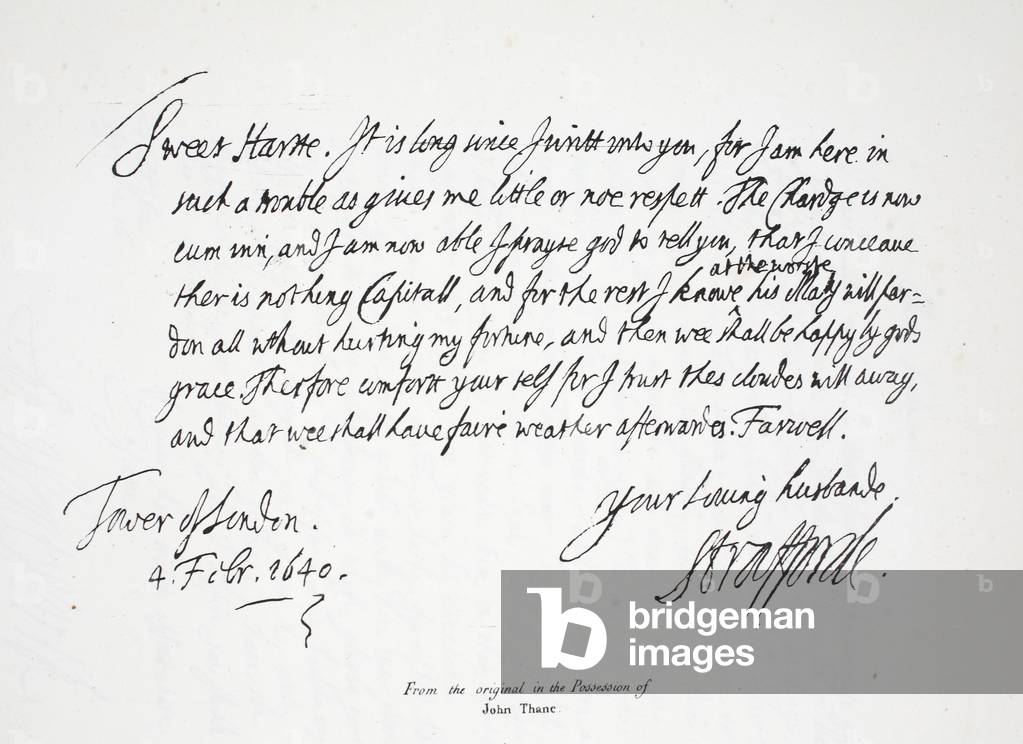 Sweet Harte. It is long since I writt unto you, for I am here in
such a trouble as gives me little or noe respett. The Chardge is now
cum inn, and I am now able I prayse god to tell you, that I conceaue
ther is nothing Capitall, and for the rest I knowe ^at the worste his Maty will par=
don all wthout hurting my fortune, and then wee shall be happy by gods
grace. Therfore comfortt your self for I trust thes cloudes will away,
and that wee shall have faire weather afterwardes. Farwell.
Your louing husbande.
Tower of London.
Strafforde.
4. Febr. 1640.
bridgeman
images
From the original in the Possession of
John Thane.